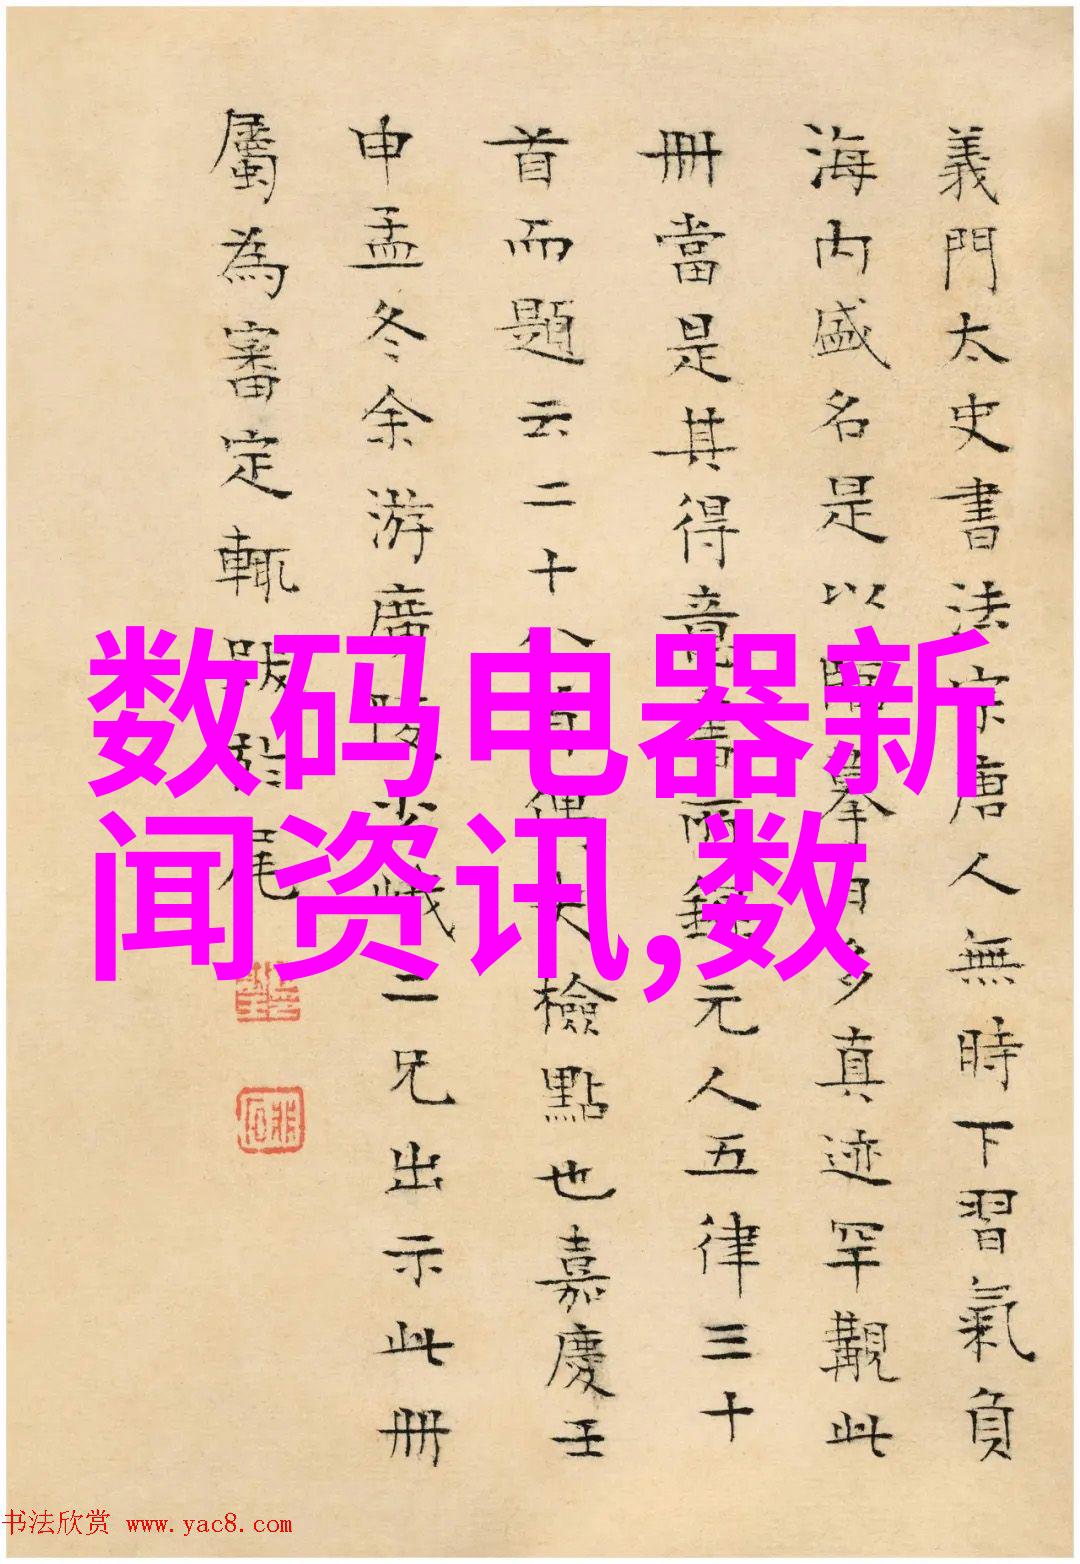 義門太史書法宗唐人無時下習氣負
海内盛名是以臨摹日多真迹罕覯此
冊當是其得意書而錄元人五律三十
首而題云二十八首偶失檢點也嘉慶壬
申孟冬余游廣陵少峨二兄出示此冊
屬為審定輒跋於尾
数码电器新
闻资讯,数
书法欣赏 www.yac8.com